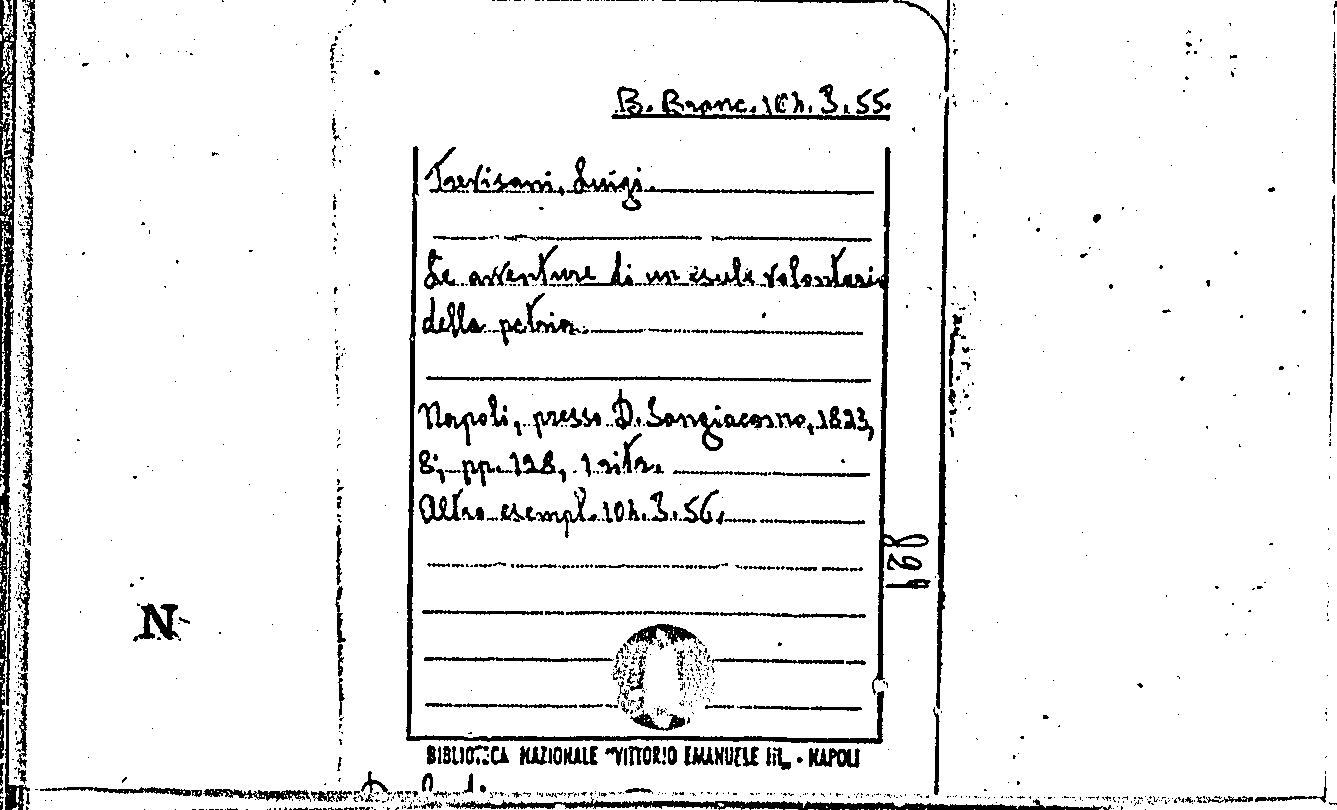 B. Branc. 10h. 3. 55.
Trevisani, Luigi.
Le avventure di un esule volontario
della patria.
Napoli, presso D. Sangiacomo, 1823,
8°, pp. 128, 1 ritr.
Altro esempl. 10h. 3. 56.
829
N
BIBLIOTECA NAZIONALE "VITTORIO EMANUELE III„ - NAPOLI